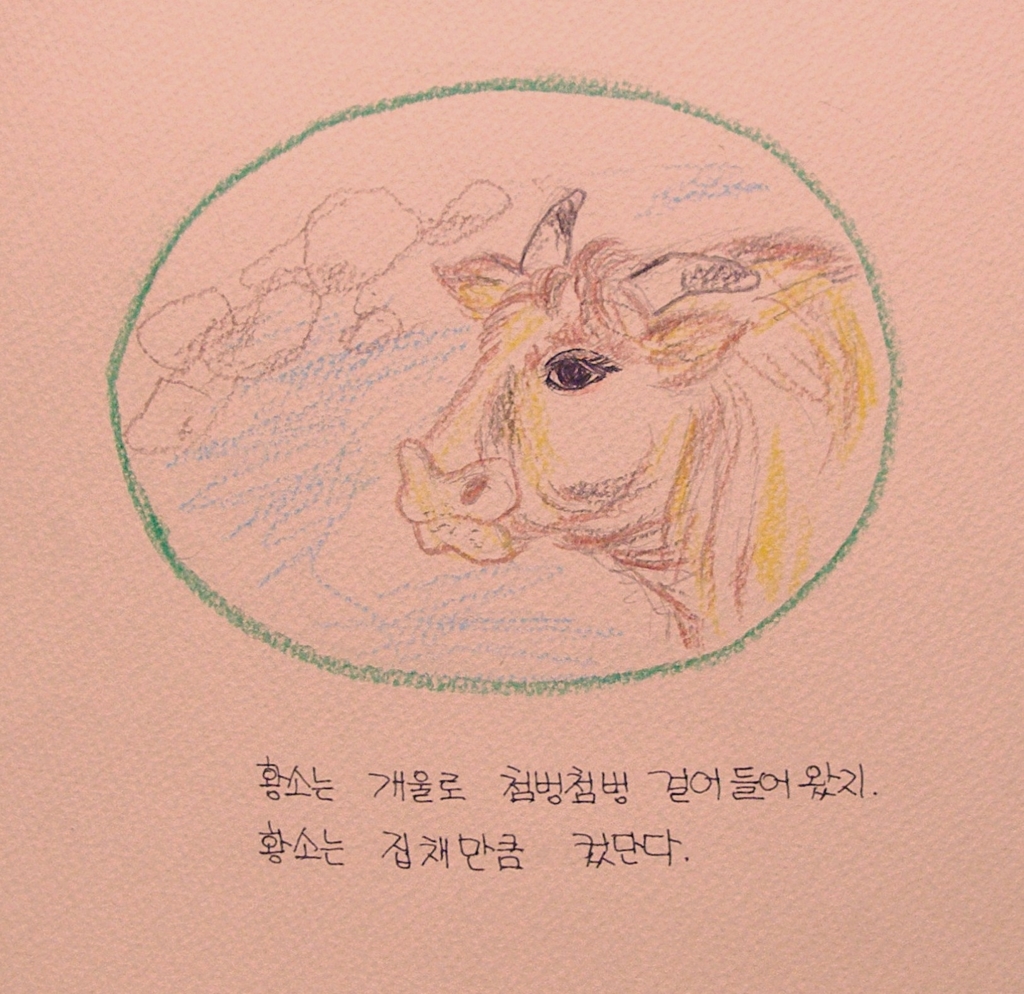 황소는 개울로 첨벙첨벙 걸어들어왔지.
황소는 집채만큼 컸단다.